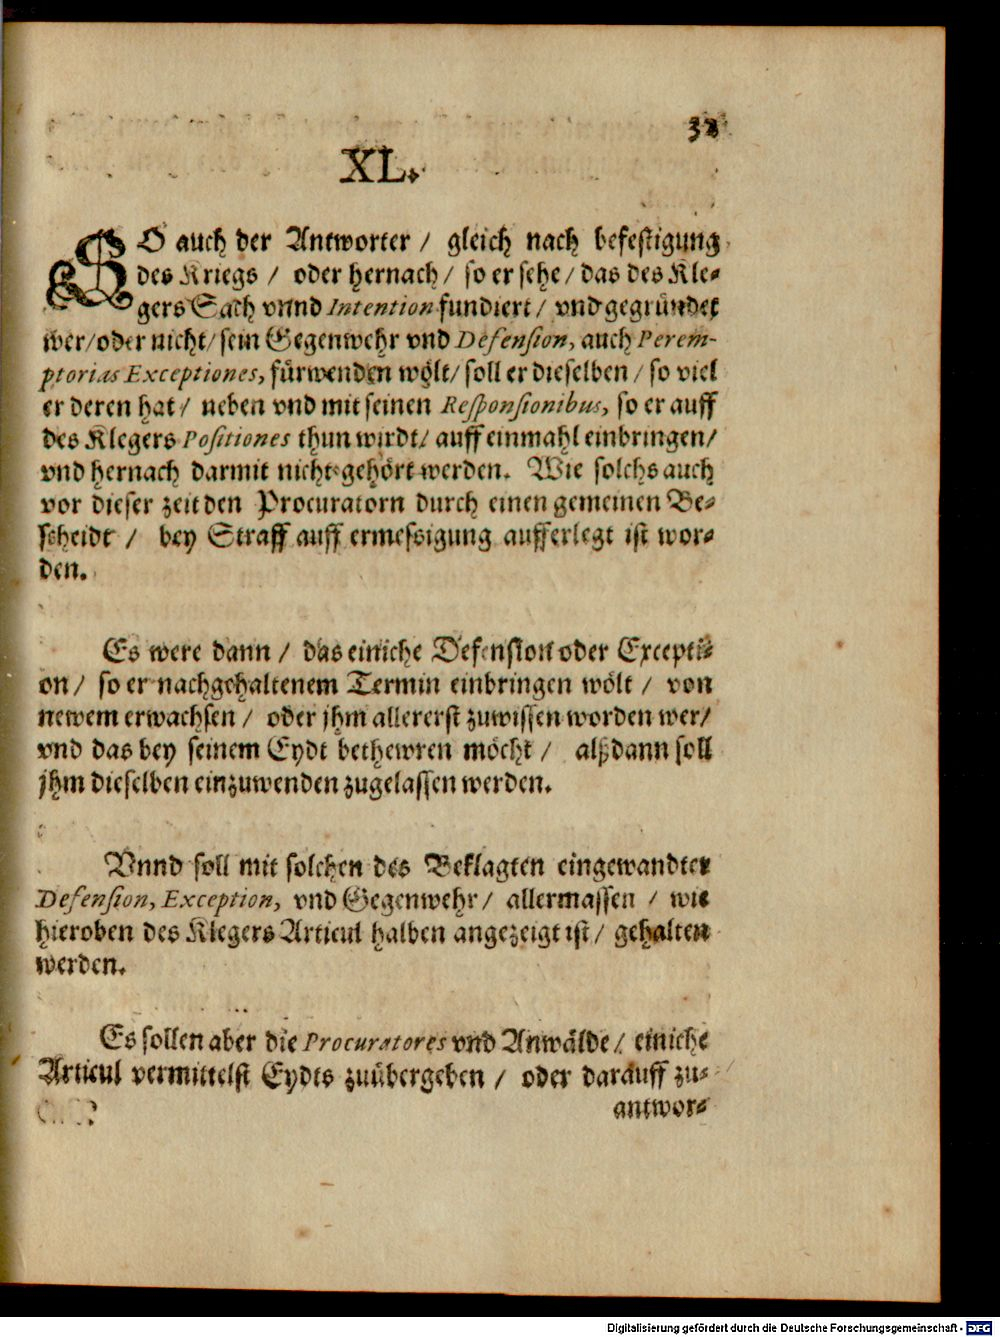 32
XL.
SO auch der Antworter / gleich nach befestigung
des Kriegs / oder hernach / so er sehe / das des Kle-
gers Sach vnnd Intention fundiert / vnd gegründet
wer / oder nicht / sein Gegenwehr vnd Defension, auch Perem-
ptorias Exceptiones, fürwenden wölt / soll er dieselben / so viel
er deren hat / neben vnd mit seinen Responsionibus, so er auff
des Klegers Positiones thun wirdt / auff einmahl einbringen /
vnd hernach darmit nicht gehört werden. Wie solchs auch
vor dieser zeit den Procuratorn durch einen gemeinen Be-
scheidt / bey Straff auff ermessigung aufferlegt ist wor-
den.
Es were dann / das einiche Defension oder Excepti-
on / so er nachgehaltenem Termin einbringen wölt / von
newem erwachsen / oder jhm allererst zuwissen worden wer /
vnd das bey seinem Eydt bethewren möcht / alßdann soll
jhm dieselben einzuwenden zugelassen werden.
Vnnd soll mit solchen des Beklagten eingewandter
Defension, Exception, vnd Gegenwehr / allermassen / wie
hieroben des Klegers Articul halben angezeigt ist / gehalten
werden.
Es sollen aber die Procuratores vnd Anwälde / einiche
Articul vermittelst Eydts zuübergeben / oder darauff zu-
antwor-
Digitalisierung gefördert durch die Deutsche Forschungsgemeinschaft - DFG